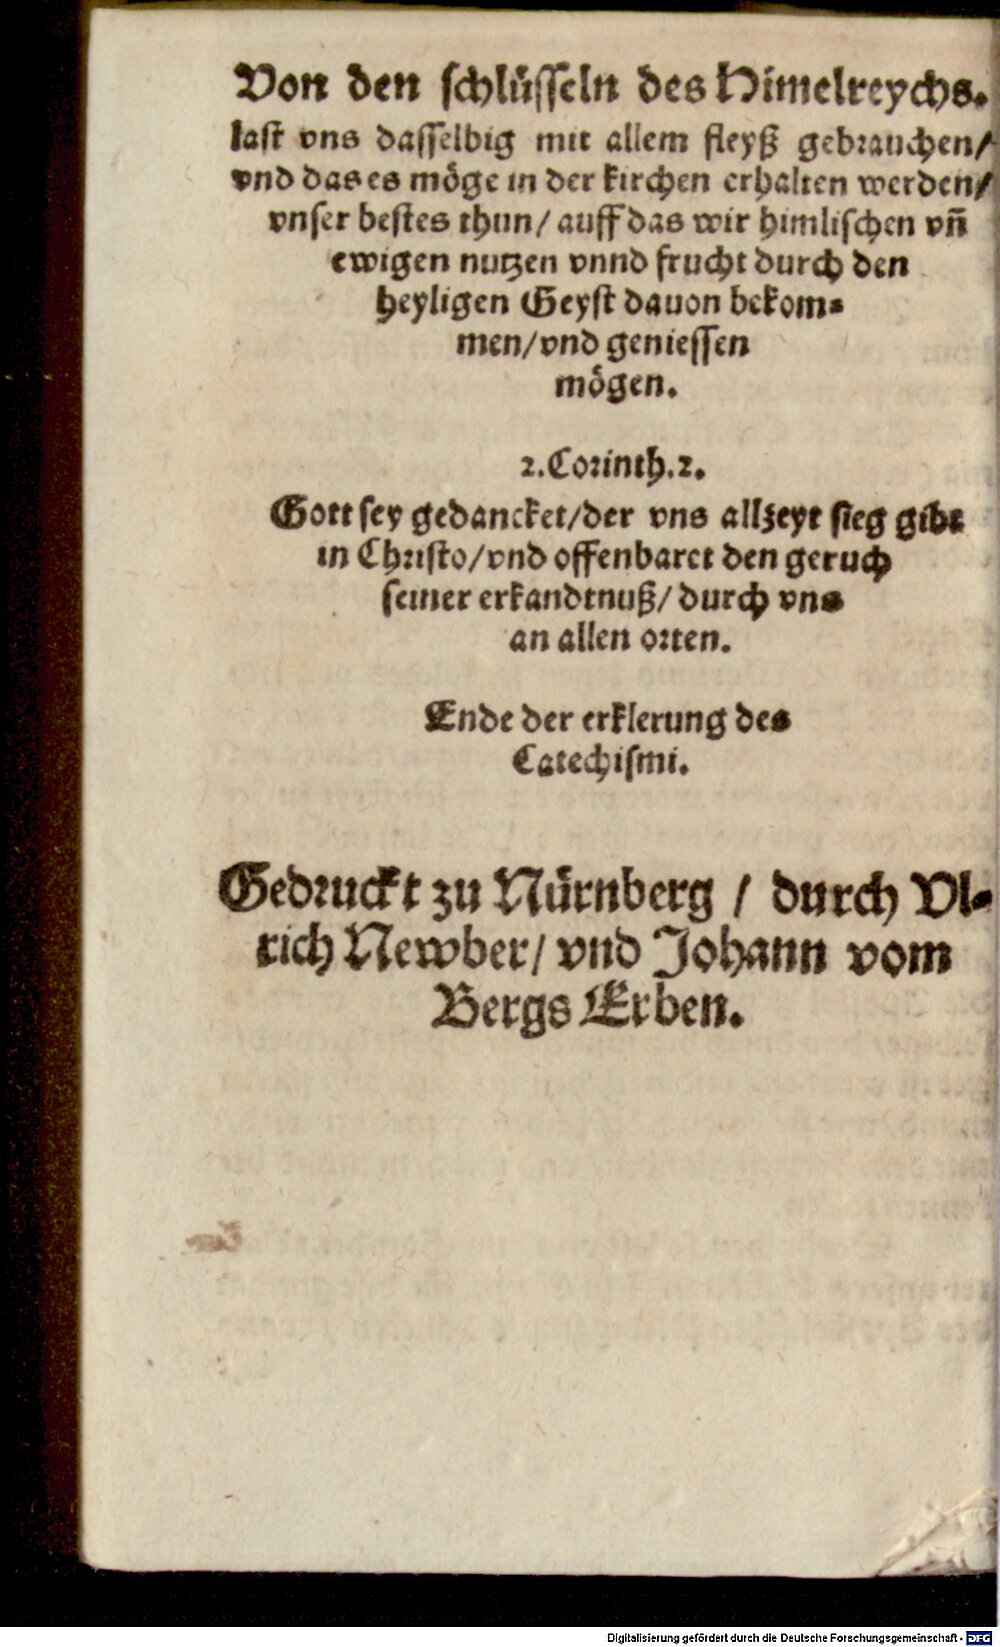 Von den schlüsseln des Himelreychs.
last vns dasselbig mit allem fleyß gebrauchen/
vnd das es möge in der kirchen erhalten werden/
vnser bestes thun/ auff das wir himlischen vñ
ewigen nutzen vnnd frucht durch den
heyligen Geyst dauon bekom-
men/vnd geniessen
mögen.
2.Corinth.2.
Gott sey gedancket/der vns allzeyt sieg gibt
in Christo/vnd offenbaret den geruch
seiner erkandtnuß/ durch vns
an allen orten.
Ende der erklerung des
Catechismi.
Gedruckt zu Nürnberg / durch Vl-
rich Newber/ vnd Johann vom
Bergs Erben.
Digitalisierung gefördert durch die Deutsche Forschungsgemeinschaft - DFG